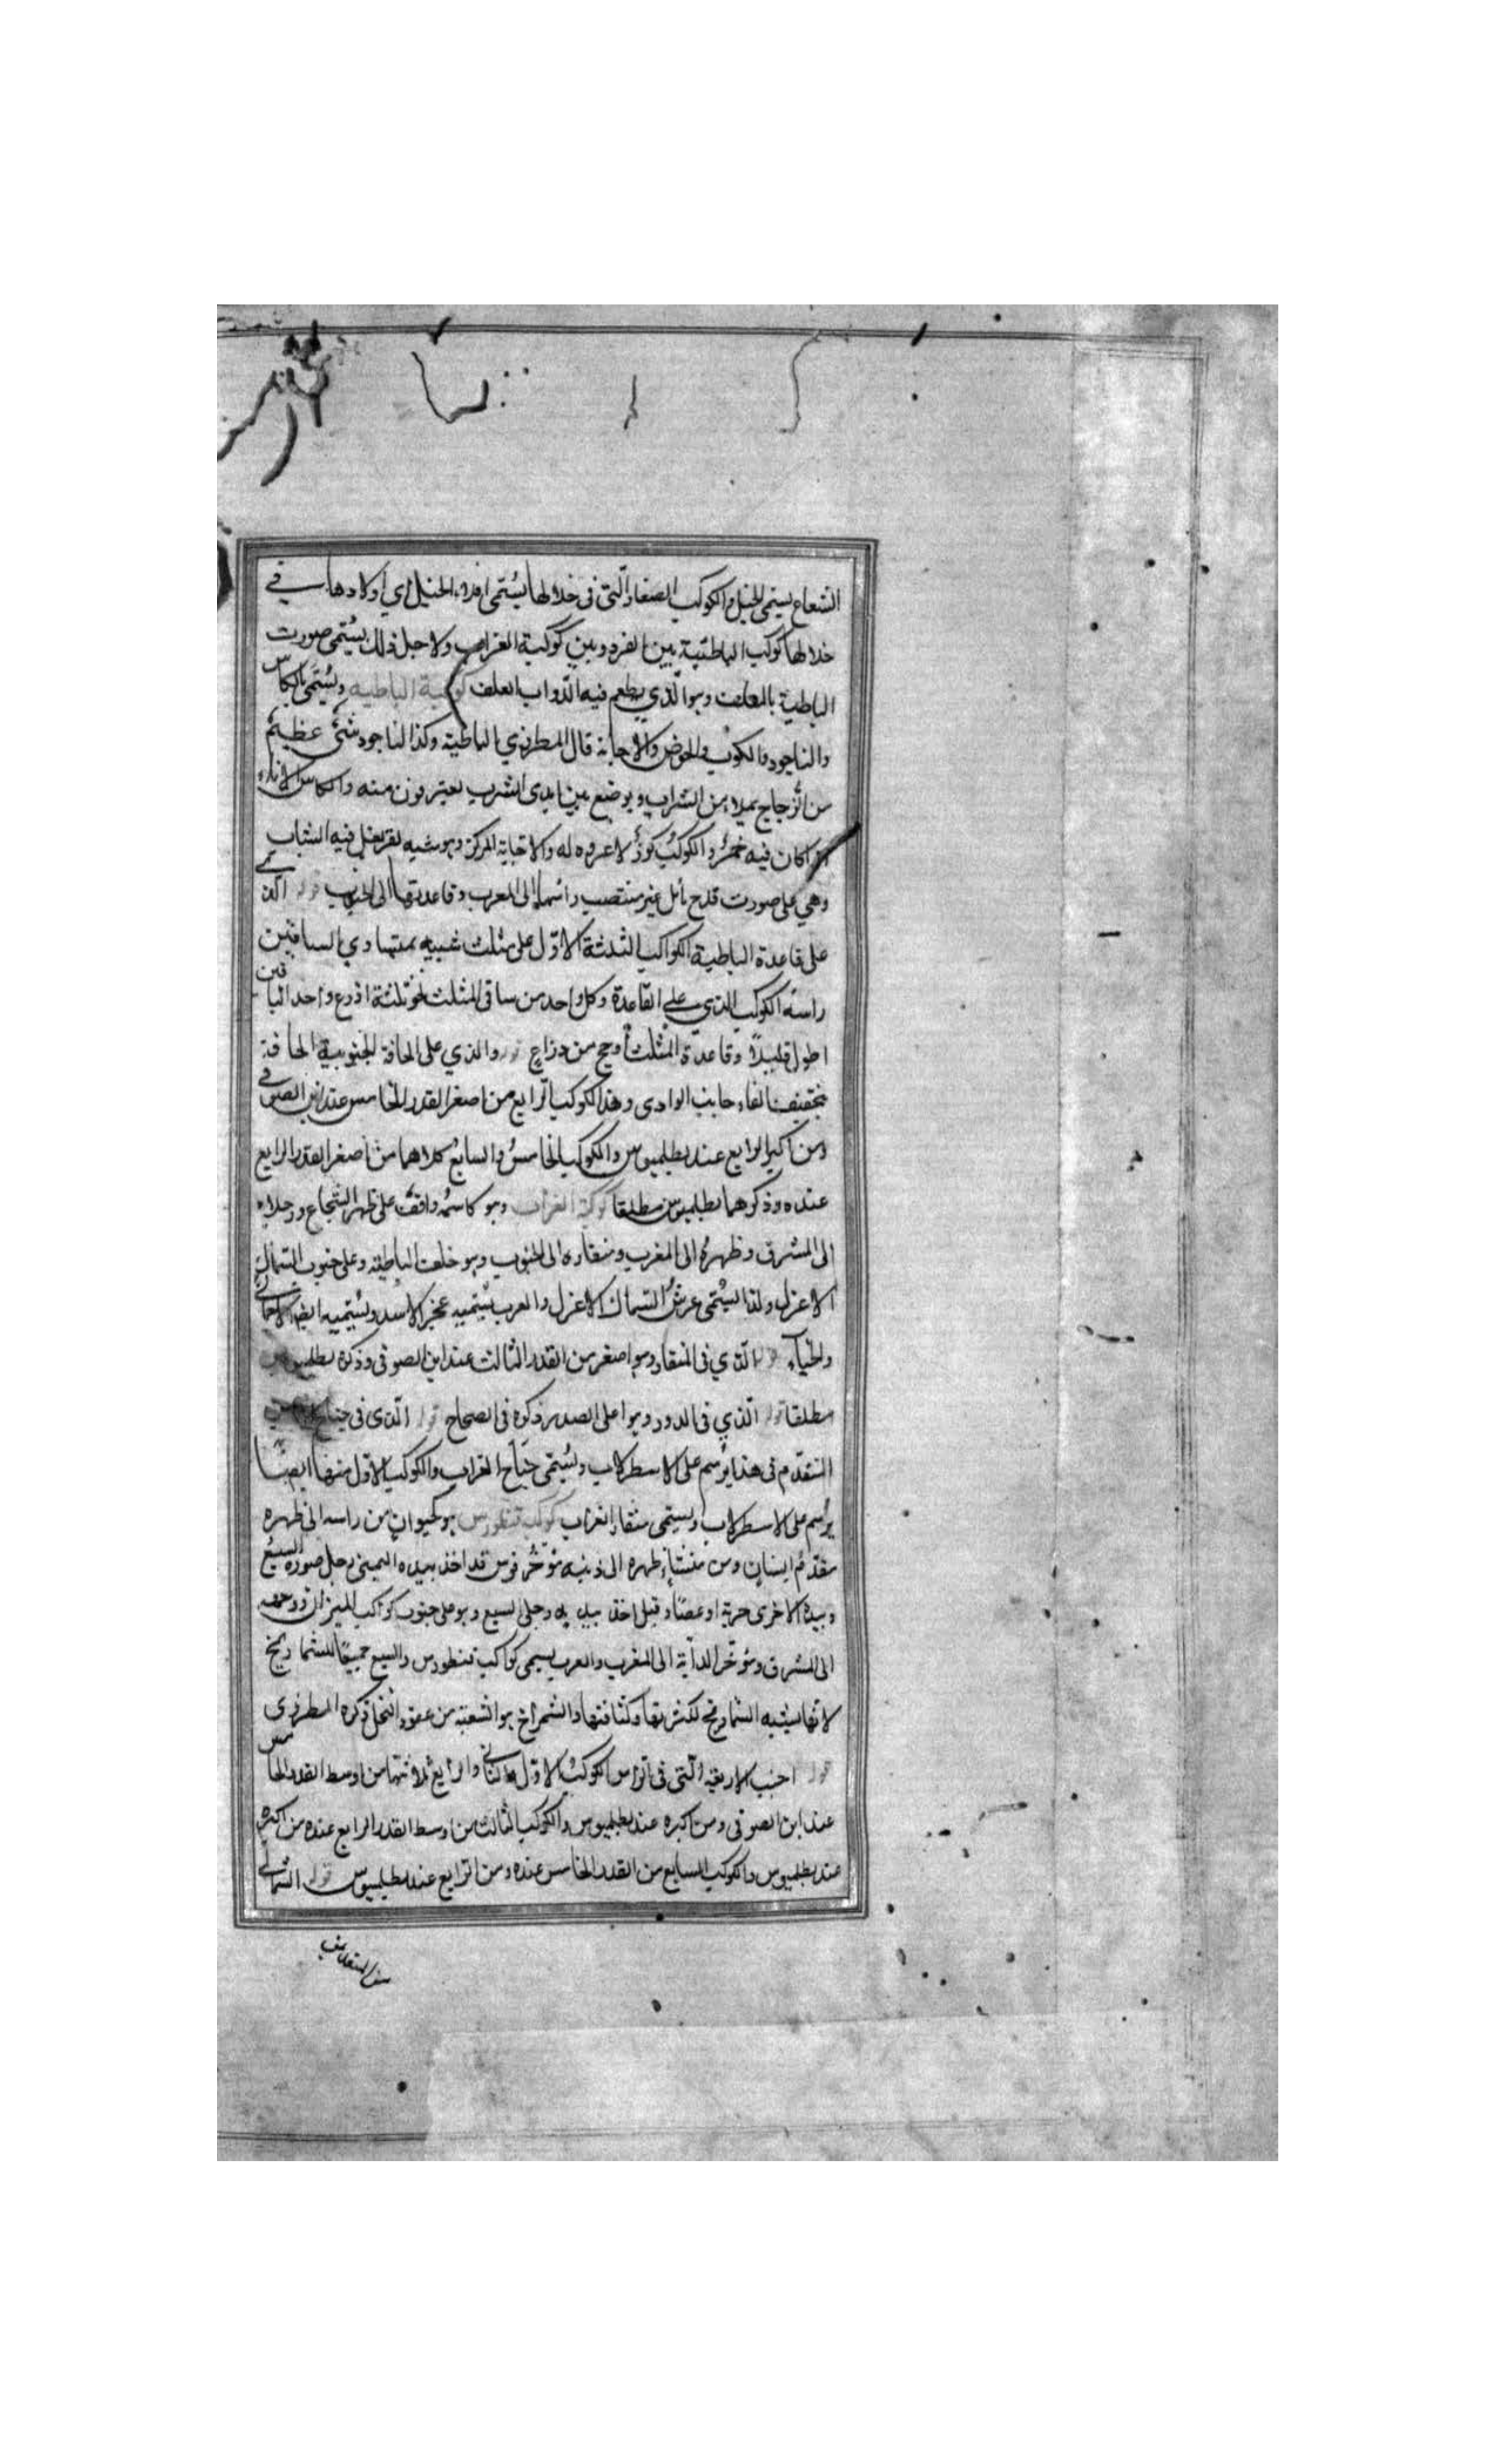 الشعاع يسمى الخيل والكوكب الصغار التى فى خلالها يسمى افلاء الخيل اى اولادها فى
خلالها كوكب الباطية بين الفرد وبين كوكبة الغراب ولاجل ذلك يسمى صورت
الباطية بالمعلف وهو الذي يطعم فيه الدواب العلف كوكبة الباطيه ويسمى بالكاس
والناجود والكوب والحوض والاجانة قال المطرزي الباطية وكذا الناجود شئ عظيم
من الزجاج يملاء من الشراب ويوضع بين ايدى الشرب يغترفون منه والكاس الاناء
اذا كان فيه خمر والكوب كوز لا عروه له والاجانة المركن وهو شبيه يغسل فيه الثياب
وهي على صورت قدح مائل غير منتصب راسها الى المغرب وقاعدتها الى الجنوب قوله الذى
على قاعدة الباطية الكواكب الثلثة الاوّل على مثلث شبيه بمتساوي الساقين
راسه الكوكب الذي على القاعدة وكل واحد من ساقى المثلث نحو ثلثة اذرع واحد الساقين
اطول قليلاً وقاعدة المثلث من ذراع قوله والذي على الحافة الجنوبية الحافة
بتخفيف الفاء جانب الوادى وهذا الكوكب الرابع من اصغر القدر الخامس عند ابن الصوفى
ومن اكبر الرابع عند بطلميوس والكوكب الخامس والسابع كلاهما من اصغر القدر الرابع
عنده وذكرهما بطلميوس مطلقا كوكبة الغراب وهو كاسمه واقف على ظهر الشجاع ورجلاه
الى المشرق وظهره الى المغرب ومنقاره الى الجنوب وهو خلف الباطية وعلى جنوب السماك
الاعزل ولذا يسمى عرش السماك الاعزل والعرب يسميه عجز الاسد ويسميه ايضا الاحمال
والخباء قوله الذي فى المنقار وهو اصغر من القدر الثالث عند ابن الصوفى وذكره بطلميوس
مطلقا قوله الذي فى الدور وهو اعلى الصدر ذكره فى الصحاح قوله الذى فى جناح
المتقدم فى هذا يرسم على الاسطرلاب ويسمى جناح الغراب والكوكب الاول منها ايضا
يرسم على الاسطرلاب ويسمى منقار الغراب كوكب قنطورس هو كحيوان من راسه الى ظهره
مقدم انسان ومن منشأ ظهره الى ذنبه مؤخر فرس قد اخذ بيده اليمنى رجل صورة السبع
وبيده الاخرى حربة او عصا وقيل اخذ بيديه رجلى السبع وهو على جنوب كواكب الميزان ووجهه
الى المشرق ومؤخر الدابة الى المغرب والعرب يسمى كواكب قنطورس والسبع جميعا الشماريخ
لانها يشبه الشماريخ لكثرتها وكثافتها والشمراخ هو الشعبة من عنقود النخل ذكره المطرزى
قوله اجنب الاربعة التى فى الراس الكوكب الاول والثانى والرابع ثلاثتها من اوسط القدر الخامس
عند ابن الصوفى ومن اكبره عند بطلميوس والكوكب الثالث من اوسط القدر الرابع عنده من اكبره
عند بطلميوس والكوكب السابع من القدر الخامس عنده ومن الرابع عند بطلميوس قوله الشمالى
من المتقدمين